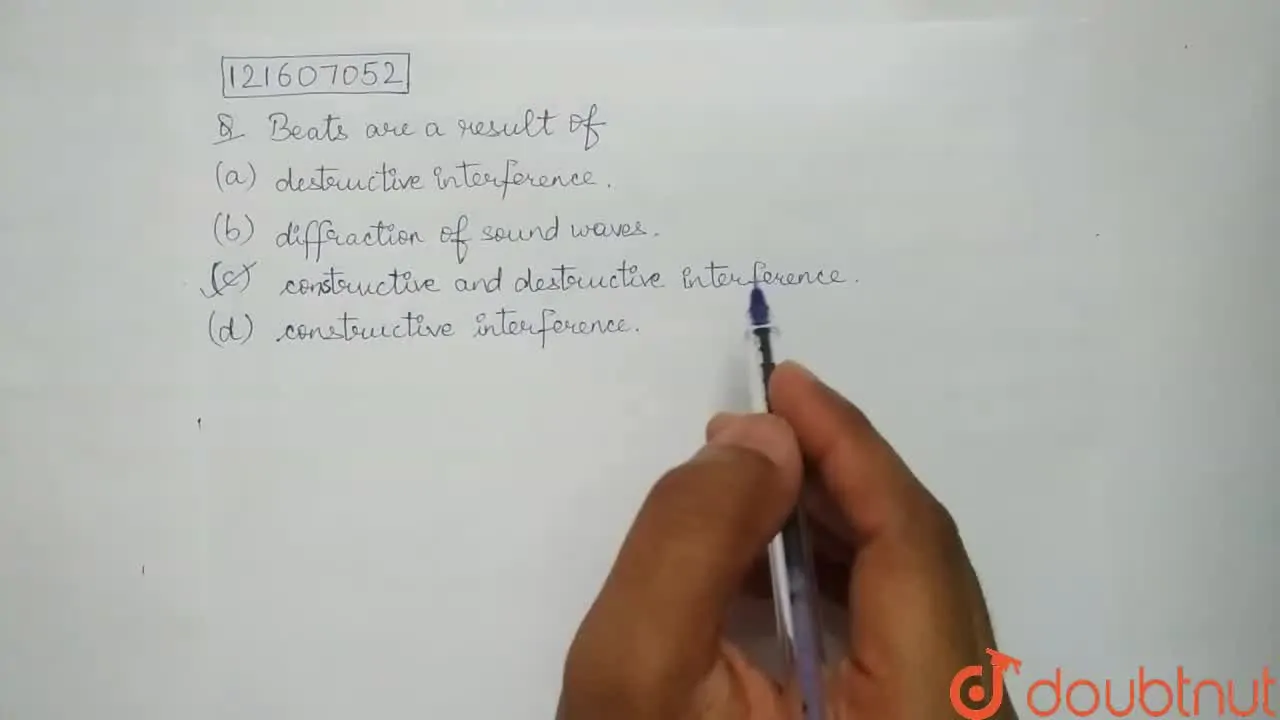 121607052
Q Beats are a result of
(a) destructive interference.
(b) diffraction of sound waves.
(c) constructive and destructive interference.
(d) constructive interference.
doubtnut